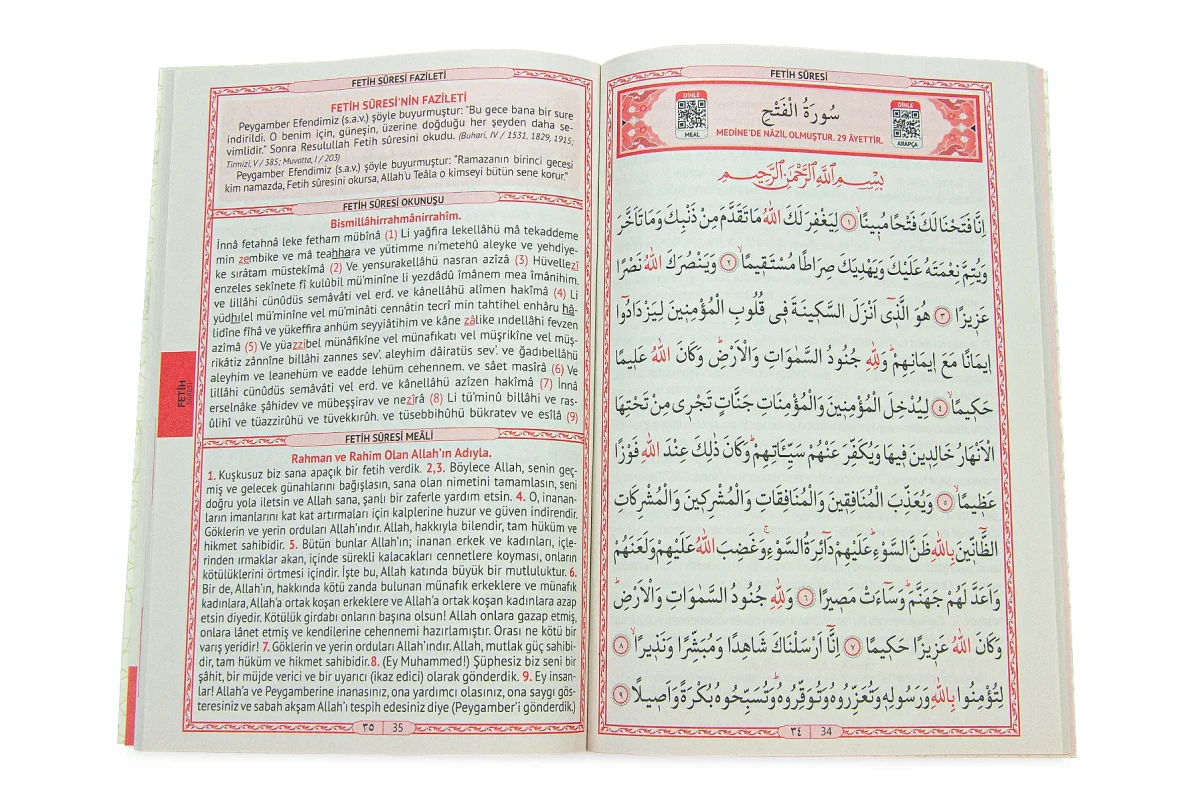 FETİH SÛRESİ FAZİLETİ
FETİH SÛRESİ'NİN FAZİLETİ
Peygamber Efendimiz (s.a.v.) şöyle buyurmuştur: "Bu gece bana bir sure
indirildi. O benim için, güneşin, üzerine doğduğu her şeyden daha se-
vimlidir." Sonra Resulullah Fetih sûresini okudu. (Buhari, IV / 1531, 1829, 1915;
Tirmizi, V / 385; Muvatta, I / 203)
Peygamber Efendimiz (s.a.v.) şöyle buyurmuştur: "Ramazanın birinci gecesi
kim namazda, Fetih sûresini okursa, Allah'u Teâla o kimseyi bütün sene korur."
FETİH SÛRESİ OKUNUŞU
Bismillâhirrahmânirrahîm.
İnnâ fetahnâ leke fetham mübînâ (1) Li yağfira lekellâhü mâ tekaddeme
min zembike ve mâ teahhara ve yütimme nı'metehû aleyke ve yehdiye-
ke sırâtam müstekîmâ (2) Ve yensurakellâhü nasran azîzâ (3) Hüvellezî
enzeles sekînete fî kulûbil mü'minîne li yezdâdû îmânem mea îmânihim.
ve lillâhi cünûdüs semâvâti vel erd. ve kânellâhü alîmen hakîmâ (4) Li
yüdhılel mü'minîne vel mü'minâti cennâtin tecrî min tahtihel enhâru hâ-
lidîne fîhâ ve yükeffira anhüm seyyiâtihim ve kâne zâlike ındellâhi fevzen
azîmâ (5) Ve yüazzibel münâfikîne vel münafıkatı vel müşrikîne vel müş-
rikâtiz zânnîne billâhi zannes sev'. aleyhim dâiratüs sev'. ve ğadıbellâhü
aleyhim ve leanehüm ve eadde lehüm cehennem. ve sâet masîrâ (6) Ve
lillâhi cünûdüs semâvâti vel erd. ve kânellâhü azîzen hakîmâ (7) İnnâ
erselnâke şâhidev ve mübeşşirav ve nezîrâ (8) Li tü'minû billâhi ve ras-
ûlihî ve tüazzirûhü ve tüvekkırûh. ve tüsebbihûhü bükratev ve esîlâ (9)
FETİH SÛRESİ MEÂLİ
Rahman ve Rahim Olan Allah'ın Adıyla.
1. Kuşkusuz biz sana apaçık bir fetih verdik. 2,3. Böylece Allah, senin geç-
miş ve gelecek günahlarını bağışlasın, sana olan nimetini tamamlasın, seni
doğru yola iletsin ve Allah sana, şanlı bir zaferle yardım etsin. 4. O, inanan-
ların imanlarını kat kat artırmaları için kalplerine huzur ve güven indirendir.
Göklerin ve yerin orduları Allah'ındır. Allah, hakkıyla bilendir, tam hüküm ve
hikmet sahibidir. 5. Bütün bunlar Allah'ın; inanan erkek ve kadınları, içle-
rinden ırmaklar akan, içinde sürekli kalacakları cennetlere koyması, onların
kötülüklerini örtmesi içindir. İşte bu, Allah katında büyük bir mutluluktur. 6.
Bir de, Allah'ın, hakkında kötü zanda bulunan münafık erkeklere ve münafık
kadınlara, Allah'a ortak koşan erkeklere ve Allah'a ortak koşan kadınlara azap
etsin diyedir. Kötülük girdabı onların başına olsun! Allah onlara gazap etmiş,
onlara lânet etmiş ve kendilerine cehennemi hazırlamıştır. Orası ne kötü bir
varış yeridir! 7. Göklerin ve yerin orduları Allah'ındır. Allah, mutlak güç sahibi-
dir, tam hüküm ve hikmet sahibidir. 8. (Ey Muhammed!) Şüphesiz biz seni bir
şâhit, bir müjde verici ve bir uyarıcı (ikaz edici) olarak gönderdik. 9. Ey insan-
lar! Allah'a ve Peygamberine inanasınız, ona yardımcı olasınız, ona saygı gös-
teresiniz ve sabah akşam Allah'ı tespih edesiniz diye (Peygamber'i gönderdik.)
٣٥ 35
FETİH
SÛRESİ
FETİH SÛRESİ
DİNLE
MEAL
سُورَةُ الْفَتْحِ
MEDİNE'DE NÂZİL OLMUŞTUR. 29 ÂYETTİR.
DİNLE
ARAPÇA
بِسْمِ اللّٰهِ الرَّحْمٰنِ الرَّحِيمِ
اِنَّا فَتَحْنَا لَكَ فَتْحًا مُبِينًاۙ ﴿١﴾ لِيَغْفِرَ لَكَ اللّٰهُ مَا تَقَدَّمَ مِنْ ذَنْبِكَ وَمَا تَاَخَّرَ
وَيُتِمَّ نِعْمَتَهُ عَلَيْكَ وَيَهْدِيَكَ صِرَاطًا مُسْتَقِيمًاۙ ﴿٢﴾ وَيَنْصُرَكَ اللّٰهُ نَصْرًا
عَزِيزًا ﴿٣﴾ هُوَ الَّذِٓي اَنْزَلَ السَّكِينَةَ فِي قُلُوبِ الْمُؤْمِنِينَ لِيَزْدَادُٓوا
اِيمَانًا مَعَ اِيمَانِهِمْۜ وَلِلّٰهِ جُنُودُ السَّمٰوَاتِ وَالْاَرْضِۜ وَكَانَ اللّٰهُ عَلِيمًا
حَكِيمًاۙ ﴿٤﴾ لِيُدْخِلَ الْمُؤْمِنِينَ وَالْمُؤْمِنَاتِ جَنَّاتٍ تَجْرِي مِنْ تَحْتِهَا
الْاَنْهَارُ خَالِدِينَ فِيهَا وَيُكَفِّرَ عَنْهُمْ سَيِّـَٔاتِهِمْۜ وَكَانَ ذٰلِكَ عِنْدَ اللّٰهِ فَوْزًا
عَظِيمًاۙ ﴿٥﴾ وَيُعَذِّبَ الْمُنَافِقِينَ وَالْمُنَافِقَاتِ وَالْمُشْرِكِينَ وَالْمُشْرِكَاتِ
الظَّٓانِّينَ بِاللّٰهِ ظَنَّ السَّوْءِۜ عَلَيْهِمْ دَٓائِرَةُ السَّوْءِۚ وَغَضِبَ اللّٰهُ عَلَيْهِمْ وَلَعَنَهُمْ
وَاَعَدَّ لَهُمْ جَهَنَّمَۜ وَسَٓاءَتْ مَصِيرًا ﴿٦﴾ وَلِلّٰهِ جُنُودُ السَّمٰوَاتِ وَالْاَرْضِۜ
وَكَانَ اللّٰهُ عَزِيزًا حَكِيمًا ﴿٧﴾ اِنَّٓا اَرْسَلْنَاكَ شَاهِدًا وَمُبَشِّرًا وَنَذِيرًاۙ ﴿٨﴾
لِتُؤْمِنُوا بِاللّٰهِ وَرَسُولِهِ وَتُعَزِّرُوهُ وَتُوَقِّرُوهُۜ وَتُسَبِّحُوهُ بُكْرَةً وَاَصِيلًا ﴿٩﴾
٣٤ 34